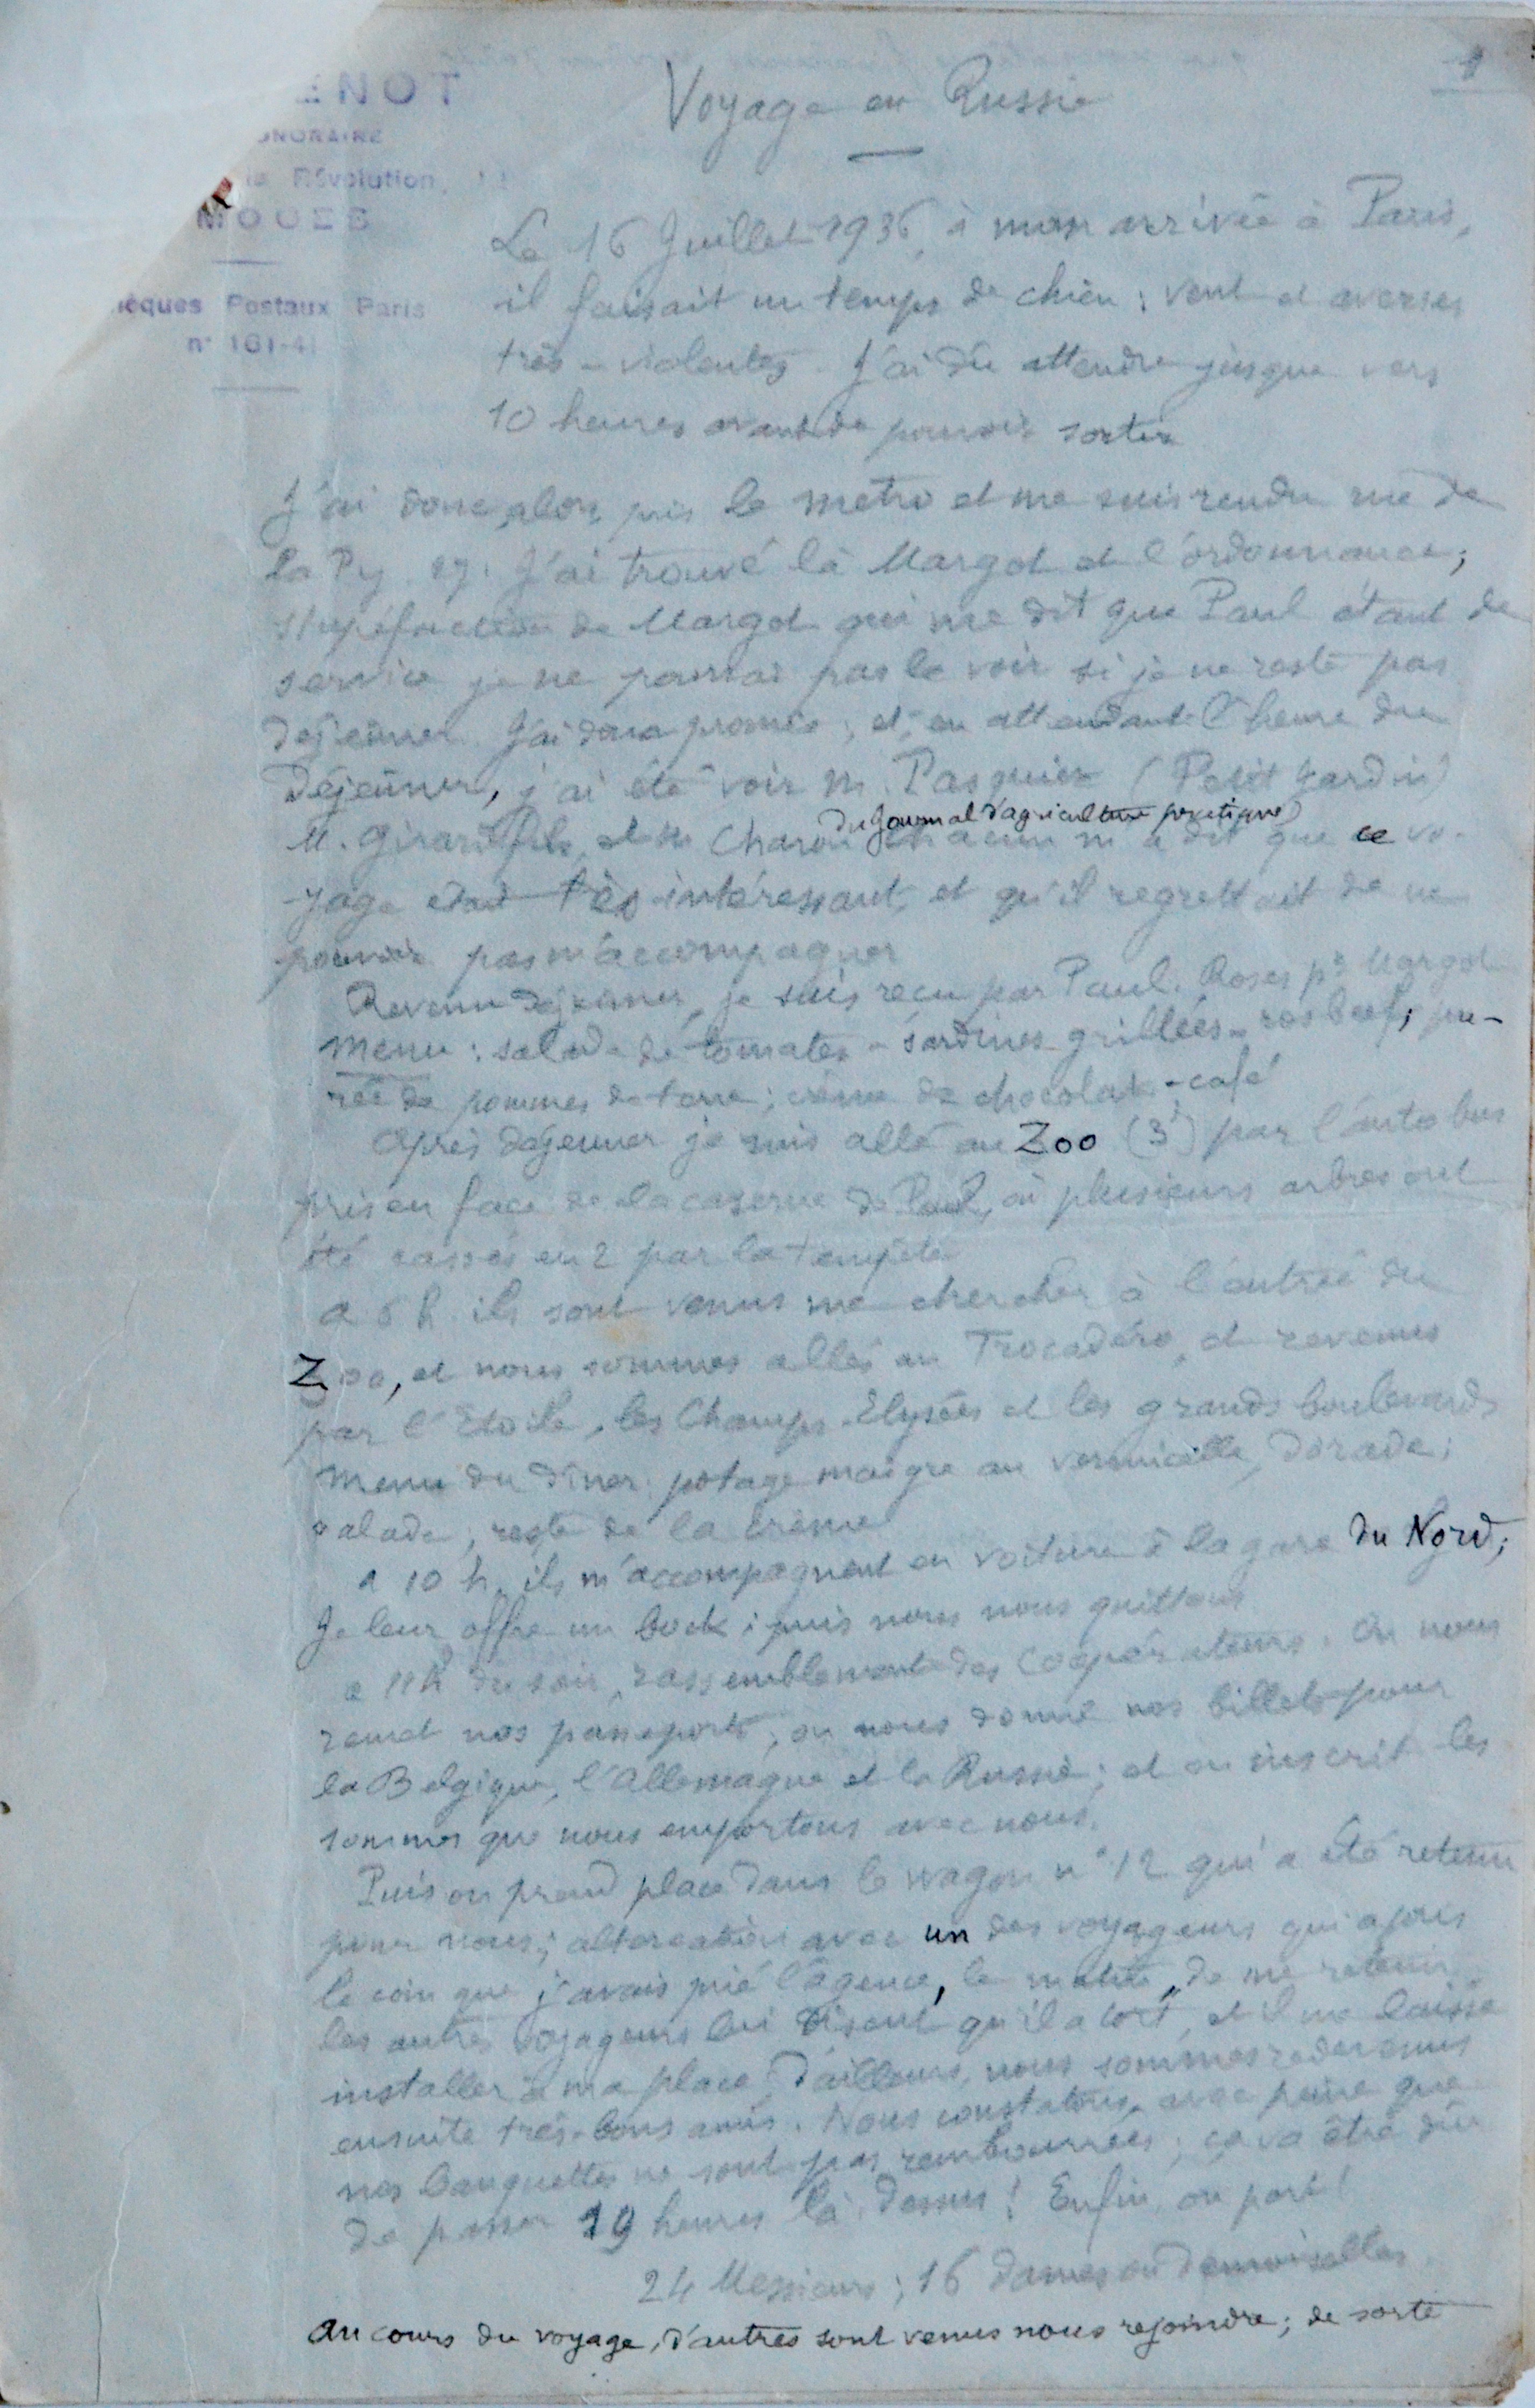 1
ENOT
ONORAIRE
la Révolution,
MOGES
èques Postaux Paris
n° 161-41
Voyage en Russie
Le 16 Juillet 1936, à mon arrivée à Paris,
il faisait un temps de chien : vent et averses
très-violentes. J'ai dû attendre jusque vers
10 heures avant de pouvoir sortir
J'ai donc alors pris le métro et me suis rendu rue de
la Py. J'ai trouvé là Margot et l'ordonnance ;
stupéfaction de Margot qui me dit que Paul étant de
service je ne pourrai pas le voir si je ne reste pas
déjeûner. J'ai donc promis ; et, en attendant l'heure du
déjeûner, j'ai été voir M. Pasquier (Petit Jardin)
du Journal d'agriculture pratique)
M. Girard fils, et M. Charon chacun m'a dit que ce vo-
-yage était très-intéressant, et qu'il regrettait de ne
pouvoir pas m'accompagner
Revenu déjeûner, je suis reçu par Paul. Roses pr Margot
Menu : salade de tomates - sardines grillées - rosbeef ; pu-
rée de pommes de terre ; crème de chocolat - café
Après déjeuner je suis allé au Zoo (3f) par l'autobus
pris en face de la caserne de Paul, où plusieurs arbres ont
été cassés en 2 par la tempête
A 6 h. ils sont venus me chercher à l'entrée du
Zoo, et nous sommes allés au Trocadéro, et revenus
par l'Etoile, les Champs-Elysées et les grands boulevards
Menu du dîner : potage maigre au vermicelle, dorade ;
salade, reste de la crème
A 10 h. ils m'accompagnent en voiture à la gare du Nord ;
Je leur offre un bock ; puis nous nous quittons
à 11h du soir, rassemblement des coopérateurs. On nous
remet nos passeports ; on nous donne nos billets pour
la Belgique, l'Allemagne et la Russie ; et on inscrit les
sommes que nous emportons avec nous.
Puis on prend place dans le wagon n° 12 qui a été retenu
pour nous ; altercation avec un des voyageurs qui a pris
le coin que j'avais prié l'agence, le matin, de me retenir
les autres voyageurs lui disent qu'il a tort, et il me laisse
installer à ma place. D'ailleurs, nous sommes redevenus
ensuite très-bons amis. Nous constatons avec peine que
nos banquettes ne sont pas rembourrées ; ça va être dur
de passer 19 heures là-dessus ! Enfin, on part !
24 Messieurs ; 16 dames ou demoiselles
Au cours du voyage, d'autres sont venus nous rejoindre ; de sorte